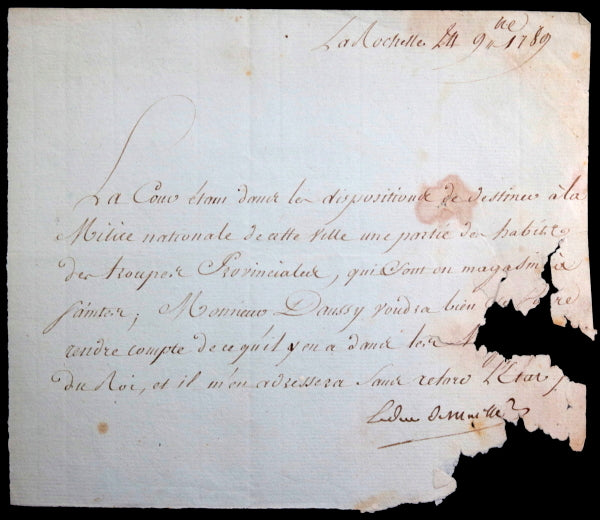 La Rochelle 24 9bre 1789
La Cour étant dans les dispositions de destiner à la
Milice nationale de cette Ville une partie des habits
des troupes Provinciales, qui sont en magasin à
Saintes; Monsieur Daussy voudra bien se faire
rendre compte de ce qu'il y en a dans les
du Roi, et il m'en adressera sans retard l'Etat
Le duc de Maillé